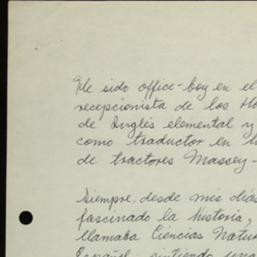 He sido office-boy en el
recepcionista de los Ho
de Inglés elemental y
como traductor en l
de tractores Massey-
Siempre, desde mis días
fascinado la historia,
llamaba Ciencias Natur
Español, sintiendo